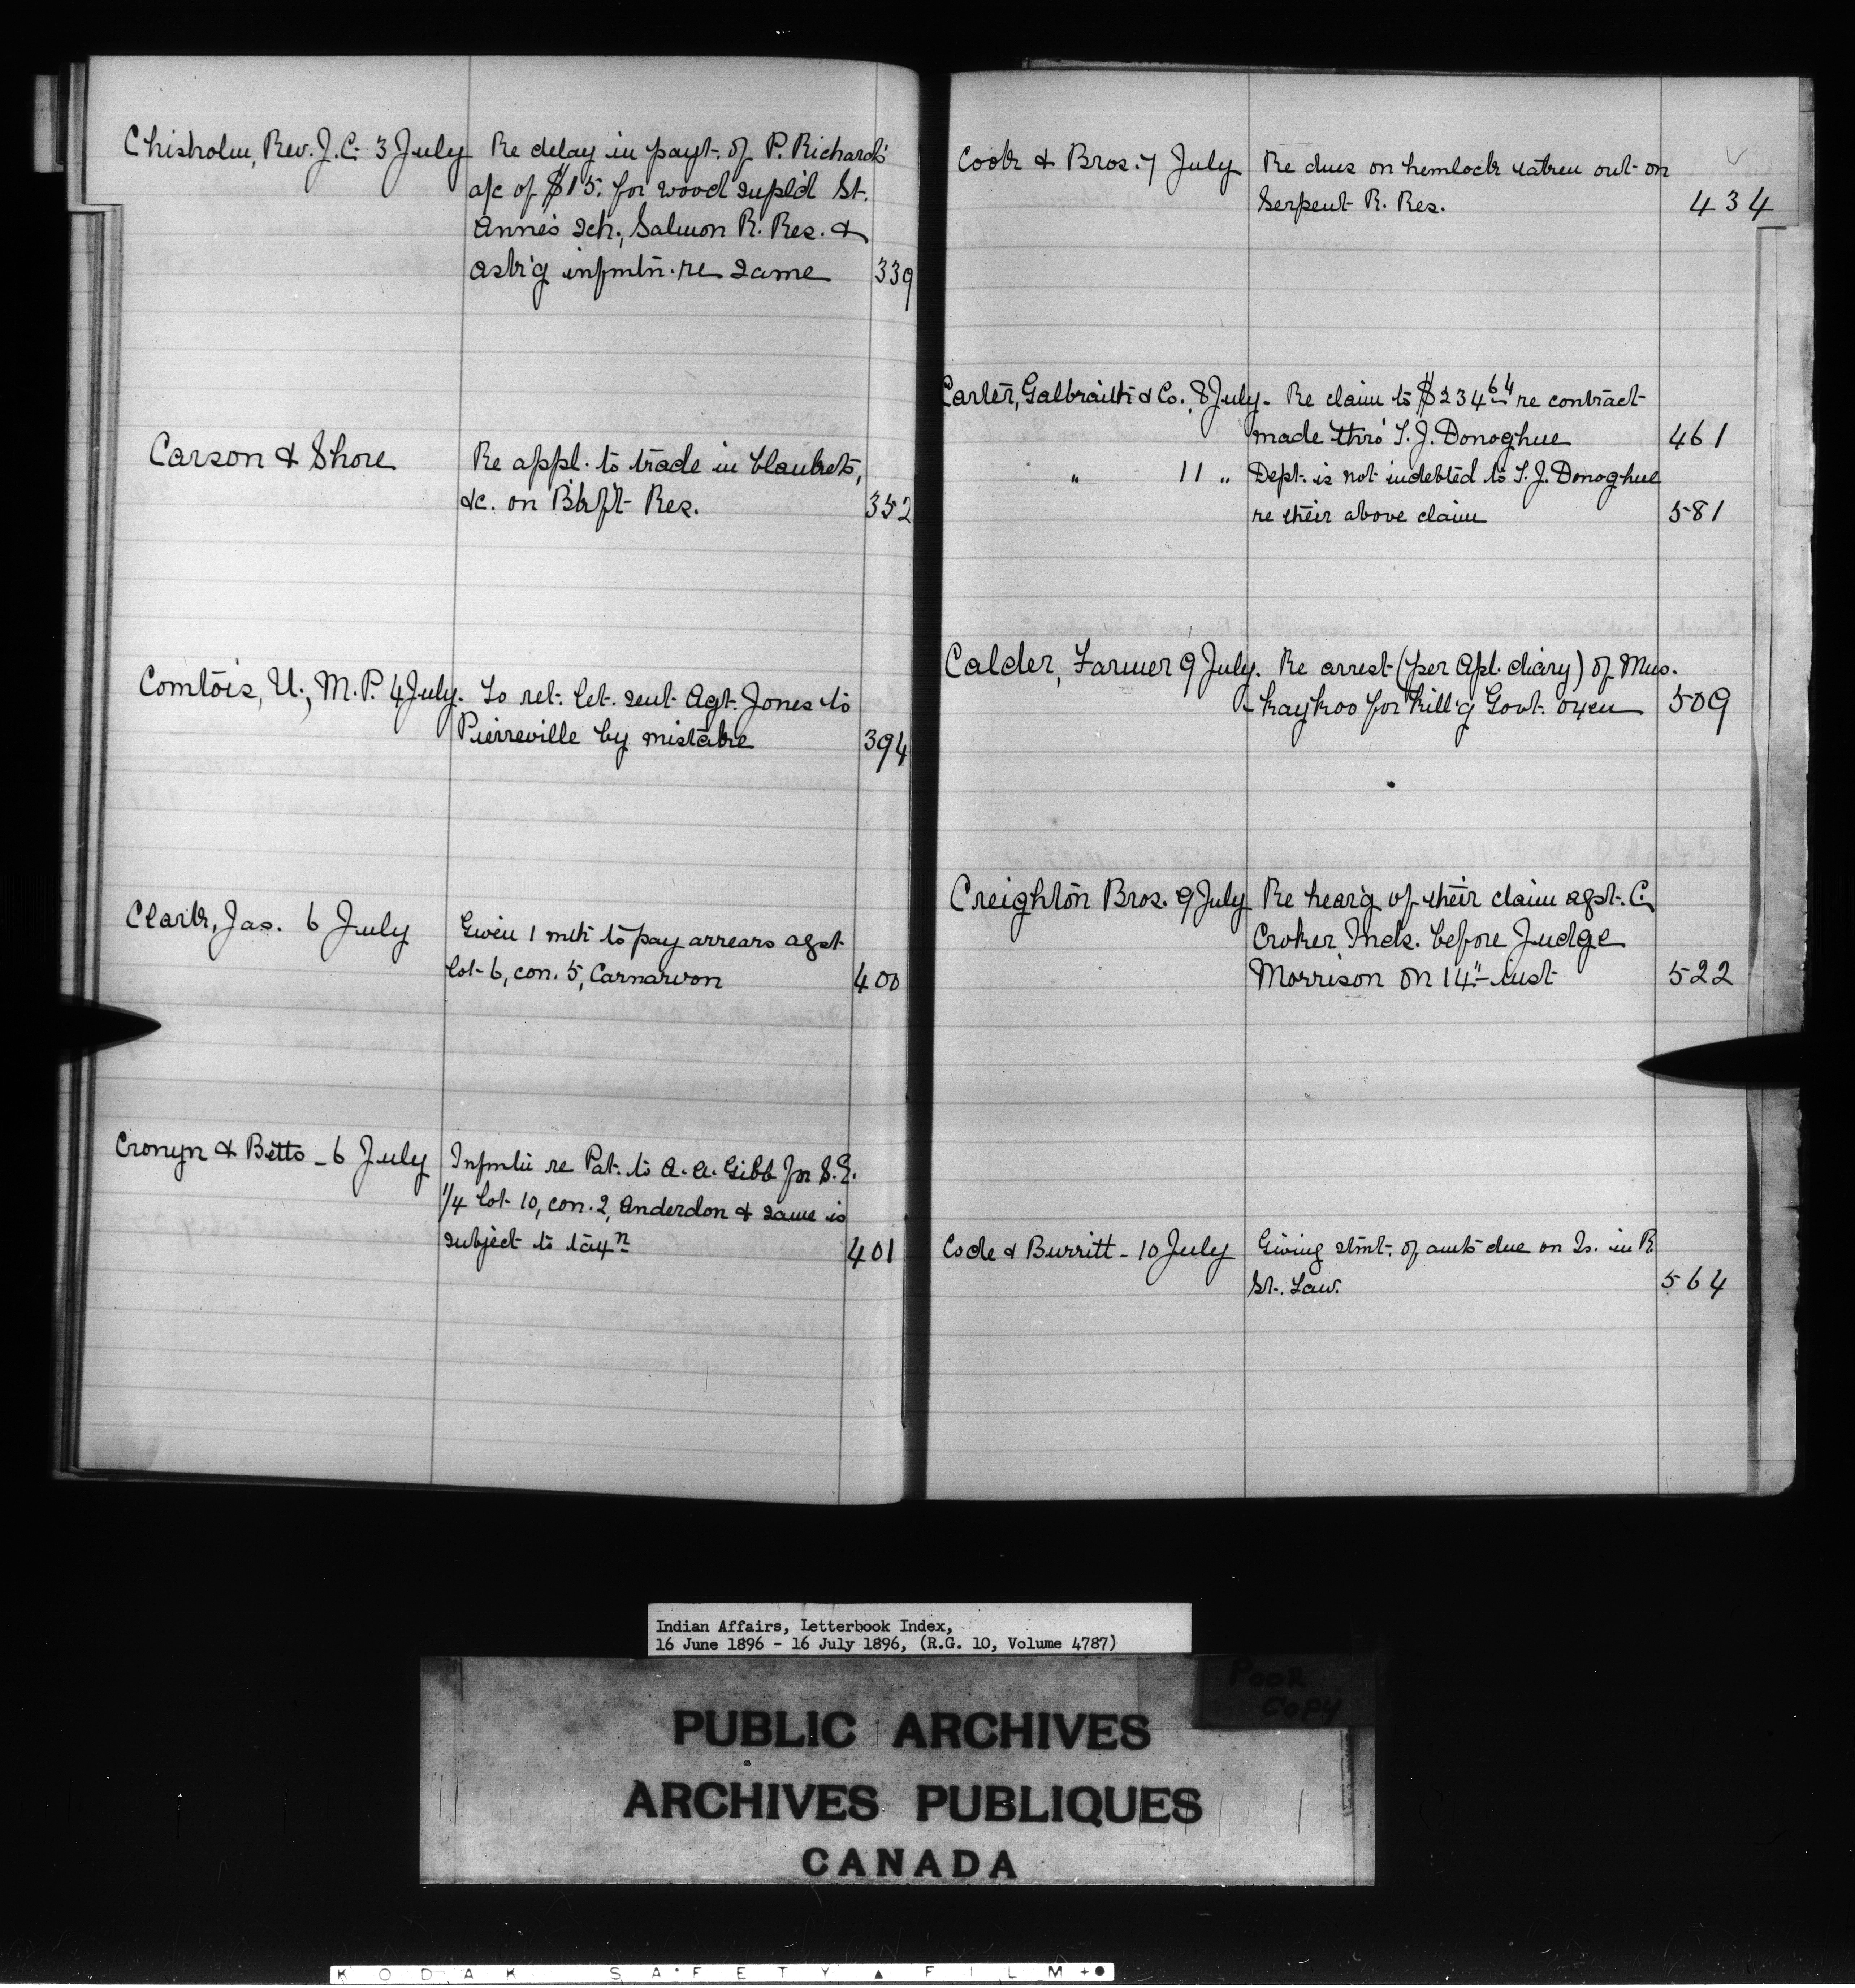 Chisholm, Rev. J. C. 3 July Re delay in payt. of P. Richard's
a/c of $15. for wood supl'd St.
Anne's Sch., Salmon R. Res. &
ask'g infmtn. re same 339
Carson & Shore Re appl. to trade in blankets,
&c. on Blkft Res. 352
Comtois, U., M.P. 4 July. To ret. let. sent Agt. Jones to
Pierreville by mistake 394
Clark, Jas. 6 July Given 1 mth to pay arrears agst
lot 6, con. 5, Carnarvon 400
Cronyn & Betts - 6 July Infmtn re Pat. to A. A. Gibb for S.E.
1/4 lot 10, con. 2, Anderdon & same is
subject to taxn 401
Cook & Bros. 7 July Re dues on hemlock taken out on
Serpent R. Res. 434
Carter, Galbraith & Co. 8 July. Re claim to $234 64 re contract
made thro' T. J. Donoghue 461
" 11 " Dept. is not indebted to T. J. Donoghue
re their above claim 581
Calder, Farmer 9 July. Re arrest (per Apl. diary) of Mus-
-kaykoo for kill'g Govt. oxen 509
Creighton Bros. 9 July Re hear'g of their claim agst. C.
Croker Inds. before Judge
Morrison on 14" inst 522
Code & Burritt - 10 July Giving stmt. of amts due on Is. in R.
St. Law. 564
Indian Affairs, Letterbook Index,
16 June 1896 - 16 July 1896, (R.G. 10, Volume 4787)
POOR
COPY
PUBLIC ARCHIVES
ARCHIVES PUBLIQUES
CANADA
KODAK SAFETY FILM